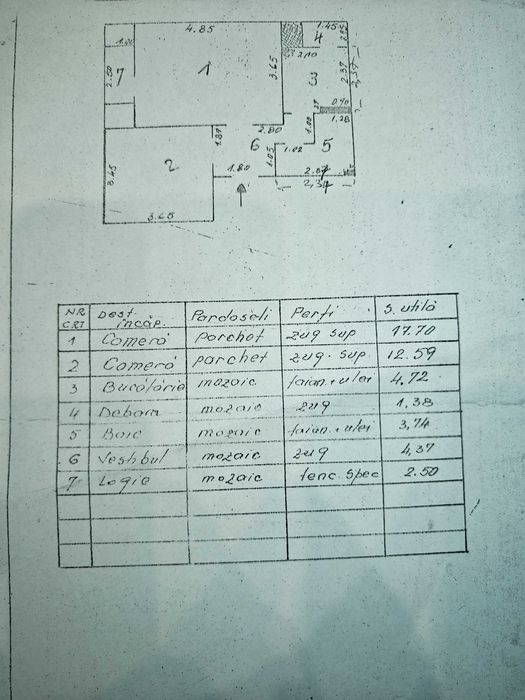 4.85
1.45
4
1.25
1.20
2.10
7
2.50
1
3.65
3
2.37
0.90
1.28
1.87
2.80
6
1.05
1.02
5
2
3.45
1.80
2.37
3.65
NR CRT Dest. încăp. Pardoseli Perți S. utilă
1 Cameră parchet zug sup 17.70
2 Cameră parchet zug. sup 12.59
3 Bucătărie mozaic faian + ulei 4.72
4 Debara mozaic zug 1,38
5 Baie mozaic faian. + ulei 3,74
6 Vestibul mozaic zug 4,37
7 Logie mozaic tenc. spec 2.50